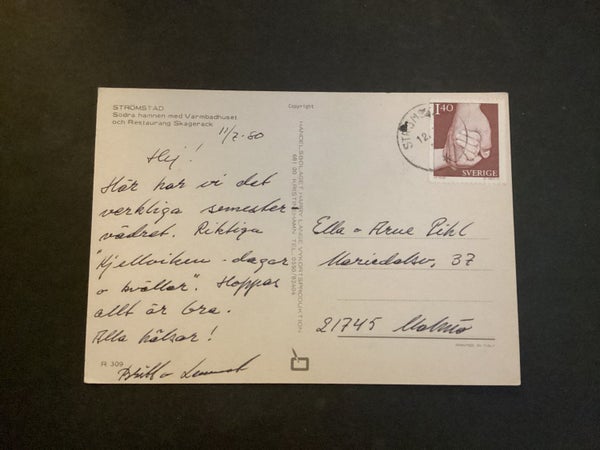 STRÖMSTAD
Södra hamnen med Varmbadhuset
och Restaurang Skagerack
Copyright
11/7-80
Hej!
Här har vi det
verkliga semester-
vädret. Riktiga
"Kjellviken - dagar
o kvällar". Hoppas
allt är bra.
Alla hälsar!
Britt o Lennart
R 309
HANDELSBOLAGET HARRY LANGE VYKORTSPRODUKTION
681 00 KRISTINEHAMN TEL.
1.40
SVERIGE
STRÖMS
12.
Ella o Arne Pihl
Mariedalsv. 37
21745 Malmö
PRINTED IN ITALY